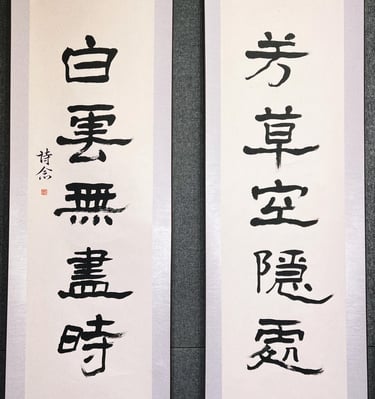 芳草空隱處
白雲無盡時
詩念